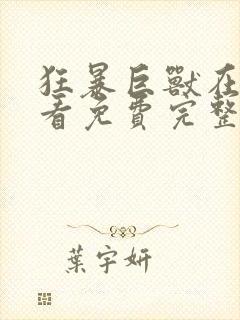 狂暴巨獸在
看免費完整
葉宇妍